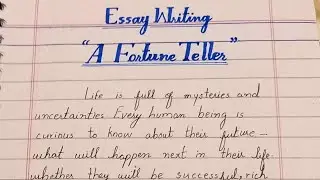 Essay Writing
"A Fortune Teller"
Life is full of mysteries and
uncertainties Every human being is
curious to know about their future –
what will happen next in their life
whether they will be successful, rich